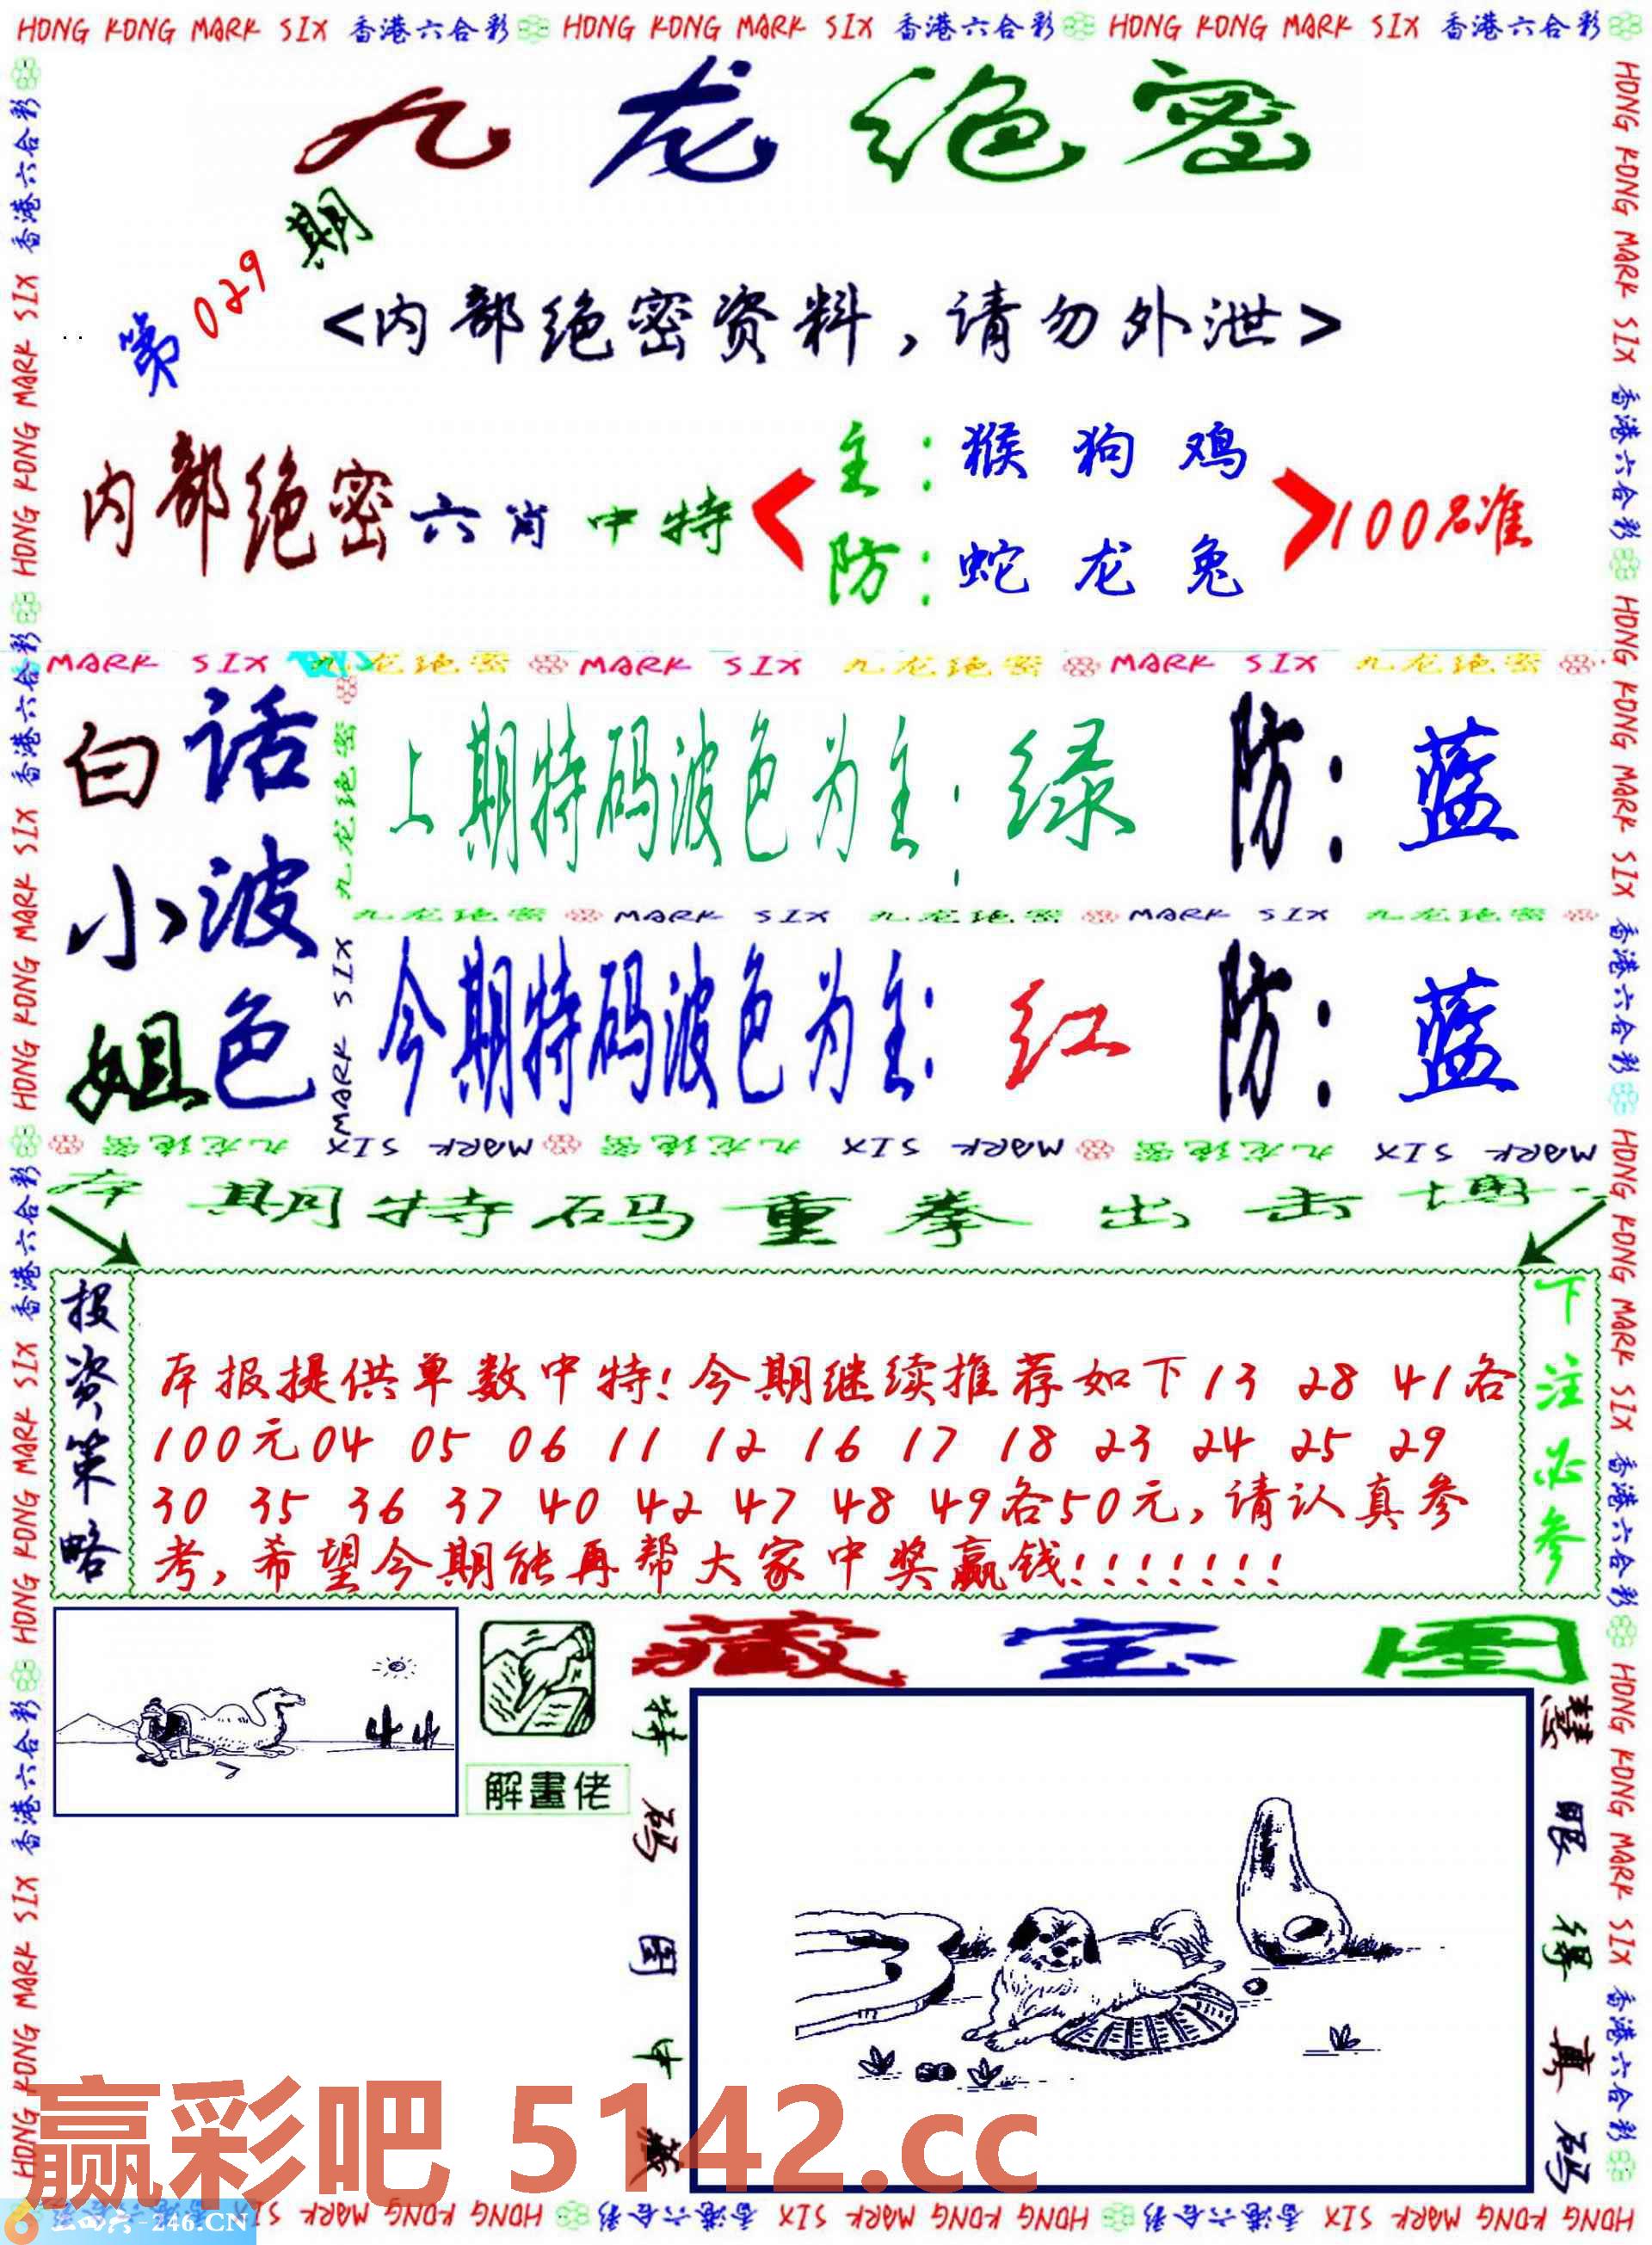 HONG KONG MARK SIX 香港六合彩 HONG KONG MARK SIX 香港六合彩 HONG KONG MARK SIX 香港六合彩
九龙绝密
第029期
<内部绝密资料,请勿外泄>
内部绝密六肖中特
主:猴狗鸡
防:蛇龙兔
100%准
MARK SIX 九龙绝密 MARK SIX 九龙绝密 MARK SIX 九龙绝密
白小姐
话波色
上期特码波色为主:绿 防:蓝
九龙绝密 MARK SIX 九龙绝密 MARK SIX 九龙绝密
今期特码波色为主:红 防:蓝
九龙绝密 MARK SIX
MARK SIX 九龙绝密 MARK SIX 九龙绝密 MARK SIX 九龙绝密
本期特码重拳出击博
投资策略
本报提供单数中特!今期继续推荐如下13 28 41各
100元04 05 06 11 12 16 17 18 23 24 25 29
30 35 36 37 40 42 47 48 49各50元,请认真参
考,希望今期能再帮大家中奖赢钱!!!!!!!
下注必参
解畫佬
藏宝图
特码图中藏
慧眼得真码
赢彩吧 5142.cc
246.CN
HONG KONG MARK SIX 香港六合彩 HONG KONG MARK SIX 香港六合彩 HONG KONG MARK SIX